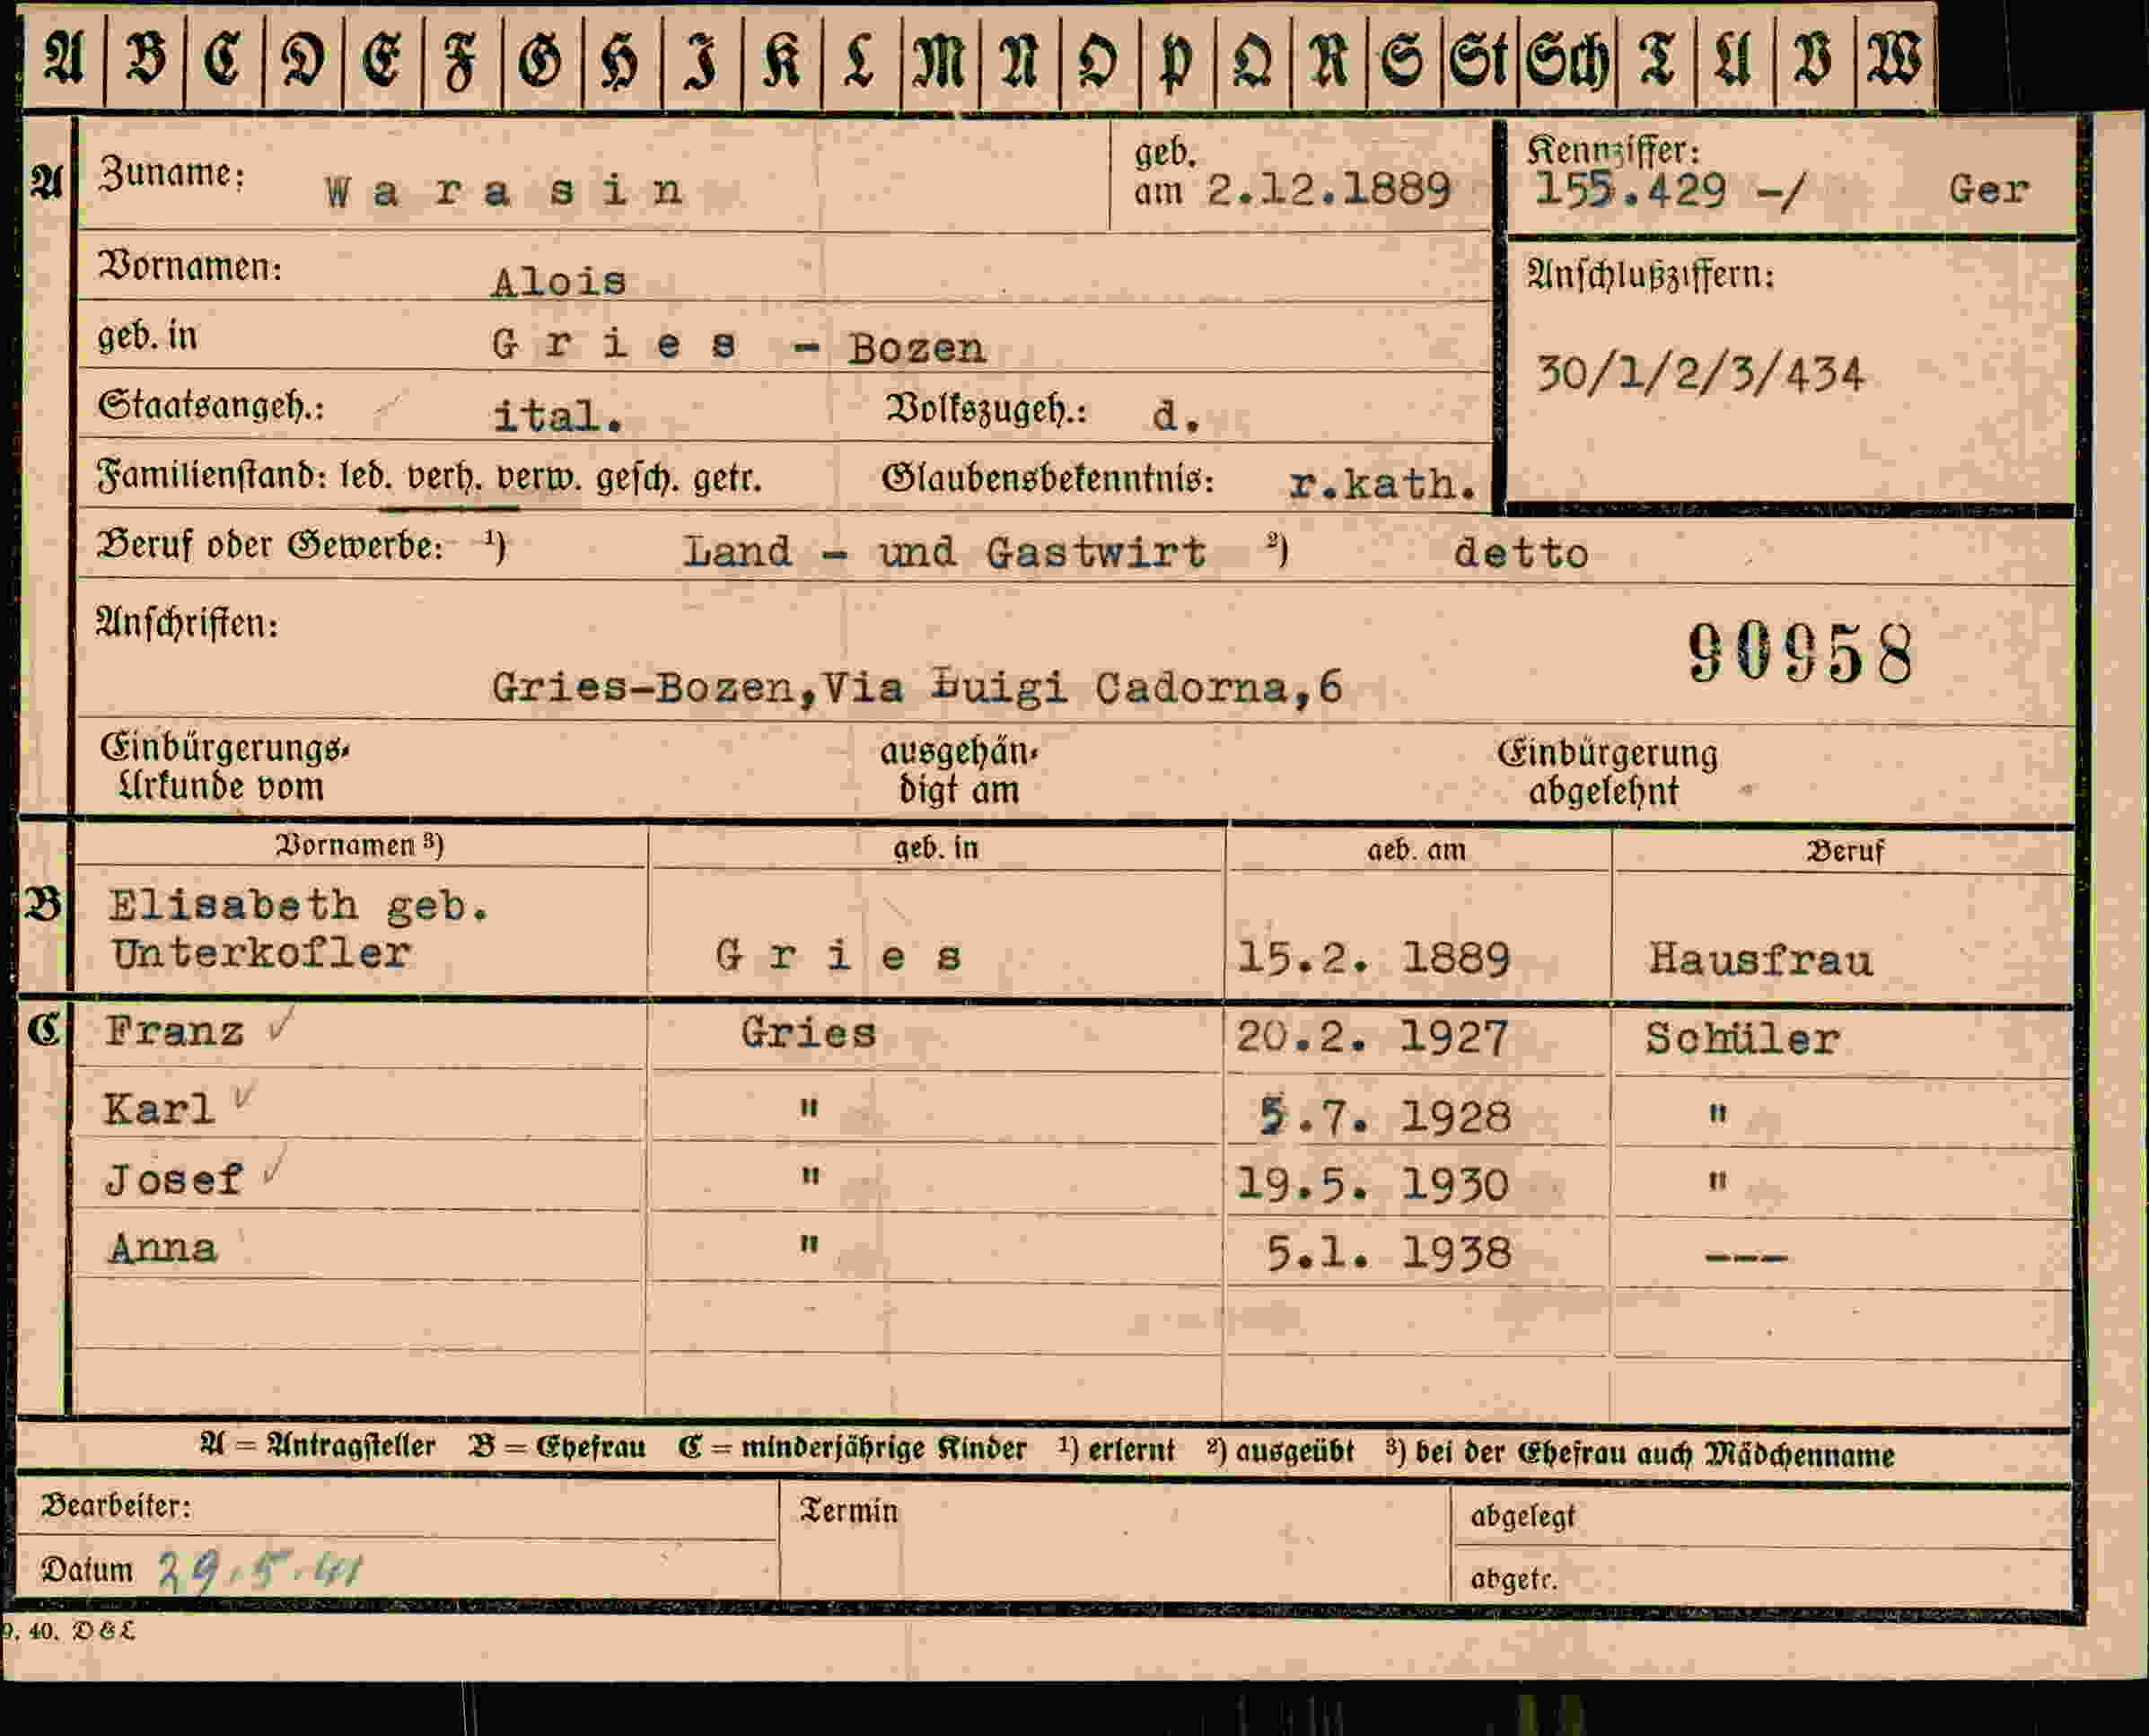 A B C D E F G H I K L M N O P Q R S St Sch T U V W
A Zuname: Warasin geb. am 2.12.1889 Kennziffer: 155.429 -/ Ger
Vornamen: Alois Anschlußziffern:
geb. in Gries - Bozen 30/1/2/3/434
Staatsangeh.: ital. Volkszugeh.: d.
Familienstand: led. verh. verw. gesch. getr. Glaubensbekenntnis: r.kath.
Beruf oder Gewerbe: 1) Land - und Gastwirt 2) detto
Anschriften: 90958
Gries-Bozen,Via Luigi Cadorna,6
Einbürgerungs- ausgehän- Einbürgerung
Urkunde vom digt am abgelehnt
Vornamen 3) geb. in geb. am Beruf
B Elisabeth geb.
Unterkofler Gries 15.2. 1889 Hausfrau
C Franz ✓ Gries 20.2. 1927 Schüler
Karl ✓ " 5.7. 1928 "
Josef ✓ " 19.5. 1930 "
Anna " 5.1. 1938 ---
A = Antragsteller B = Ehefrau C = minderjährige Kinder 1) erlernt 2) ausgeübt 3) bei der Ehefrau auch Mädchenname
Bearbeiter: Termin abgelegt
Datum 29.5.41 abgetr.
9. 40. D&L